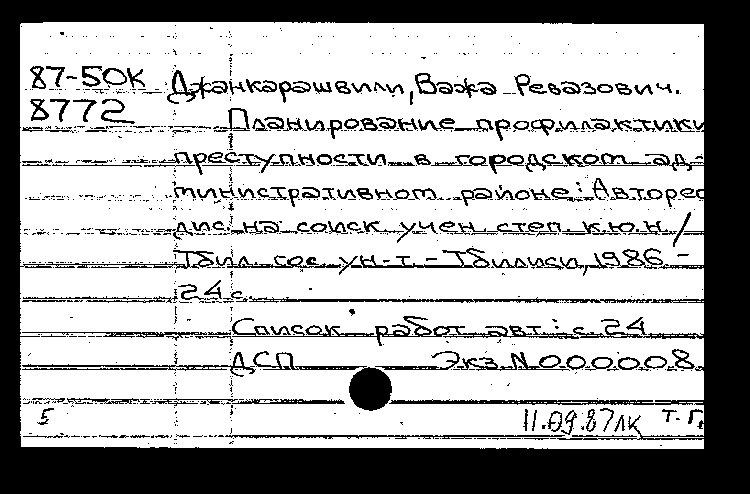 87-50К Джанкарашвили, Важа Ревазович.
8772 Планирование профилактики
преступности в городском ад-
министративном районе: Автореф
дис. на соиск учен степ. к.ю.н. /
Тбил. гос. ун-т. - Тбилиси, 1986 -
24 с.
Список работ авт.: с. 24
ДСП Экз. N 000008.
5 11.09.87лк Т-Г.